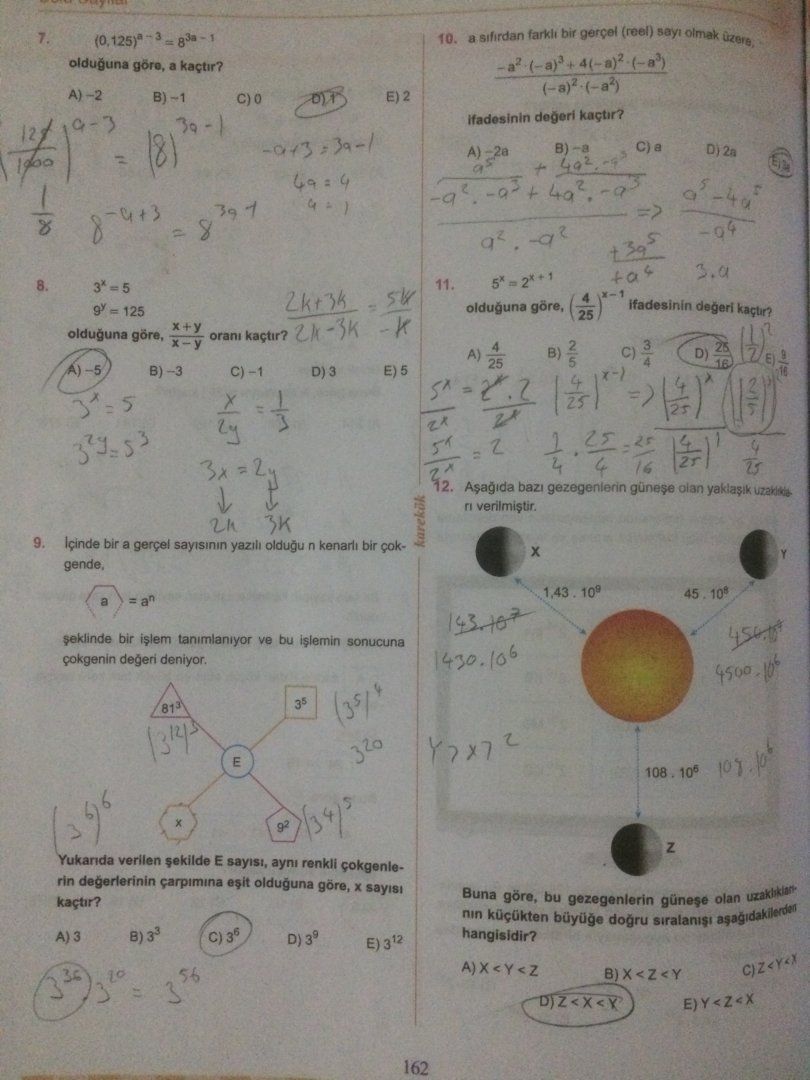 7. (0,125)^(a – 3) = 8^(3a – 1)
olduğuna göre, a kaçtır?
A) –2 B) –1 C) 0 D) 1 E) 2
(125/1000)^(a-3) = (8)^(3a-1)
-a+3 = 3a-1
4a = 4
a = 1
1/8
8^(-a+3) = 8^(3a-1)
8. 3^x = 5
9^y = 125
olduğuna göre, (x + y)/(x – y) oranı kaçtır?
(2k+3k)/(2k-3k) = 5k/-k
A) –5 B) –3 C) –1 D) 3 E) 5
3^x = 5
3^2y = 5^3
x/2y = 1/3
3x = 2y
2k 3k
9. İçinde bir a gerçel sayısının yazılı olduğu n kenarlı bir çok-
gende,
a = a^n
şeklinde bir işlem tanımlanıyor ve bu işlemin sonucuna
çokgenin değeri deniyor.
81^3 3^5 (3^5)^4
(3^12)^3 3^20
E
(3^6)^6 x 9^2 (3^4)^5
Yukarıda verilen şekilde E sayısı, aynı renkli çokgenle-
rin değerlerinin çarpımına eşit olduğuna göre, x sayısı
kaçtır?
A) 3 B) 3^3 C) 3^6 D) 3^9 E) 3^12
3^36 . 3^20 = 3^56
karekök
10. a sıfırdan farklı bir gerçel (reel) sayı olmak üzere,
(–a^2·(–a)^3 + 4(–a)^2·(–a^3))/((–a)^2·(–a^2))
ifadesinin değeri kaçtır?
A) –2a B) –a C) a D) 2a
a^5 + 4a^2.-a^3
-a^2.-a^3 + 4a^2.-a^3
a^2.-a^2
=> (a^5-4a^5)/-a^4
+3a^5/+a^4 3.a
11. 5^x = 2^(x + 1)
olduğuna göre, (4/25)^(x–1) ifadesinin değeri kaçtır?
A) 4/25 B) 2/5 C) 3/4 D) 25/16 E) 9/16
5^x/2^x = 2^x.2/2^x (4/25)^(x-1) => (4/25)^x
5^x/2^x = 2 1/4 . 25/4 = 25/16 (4/25)^1 4/25
12. Aşağıda bazı gezegenlerin güneşe olan yaklaşık uzaklıkla-
rı verilmiştir.
X Y
1,43 . 10^9 45 . 10^8
143.10^7
1430.10^6 4500.10^6
Y>X>Z
108 . 10^6 108.10^6
Z
Buna göre, bu gezegenlerin güneşe olan uzaklıkları-
nın küçükten büyüğe doğru sıralanışı aşağıdakilerden
hangisidir?
A) X < Y < Z B) X < Z < Y C) Z < Y < X
D) Z < X < Y E) Y < Z < X
162